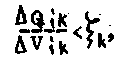 ΔQik/ΔVik<ξk,